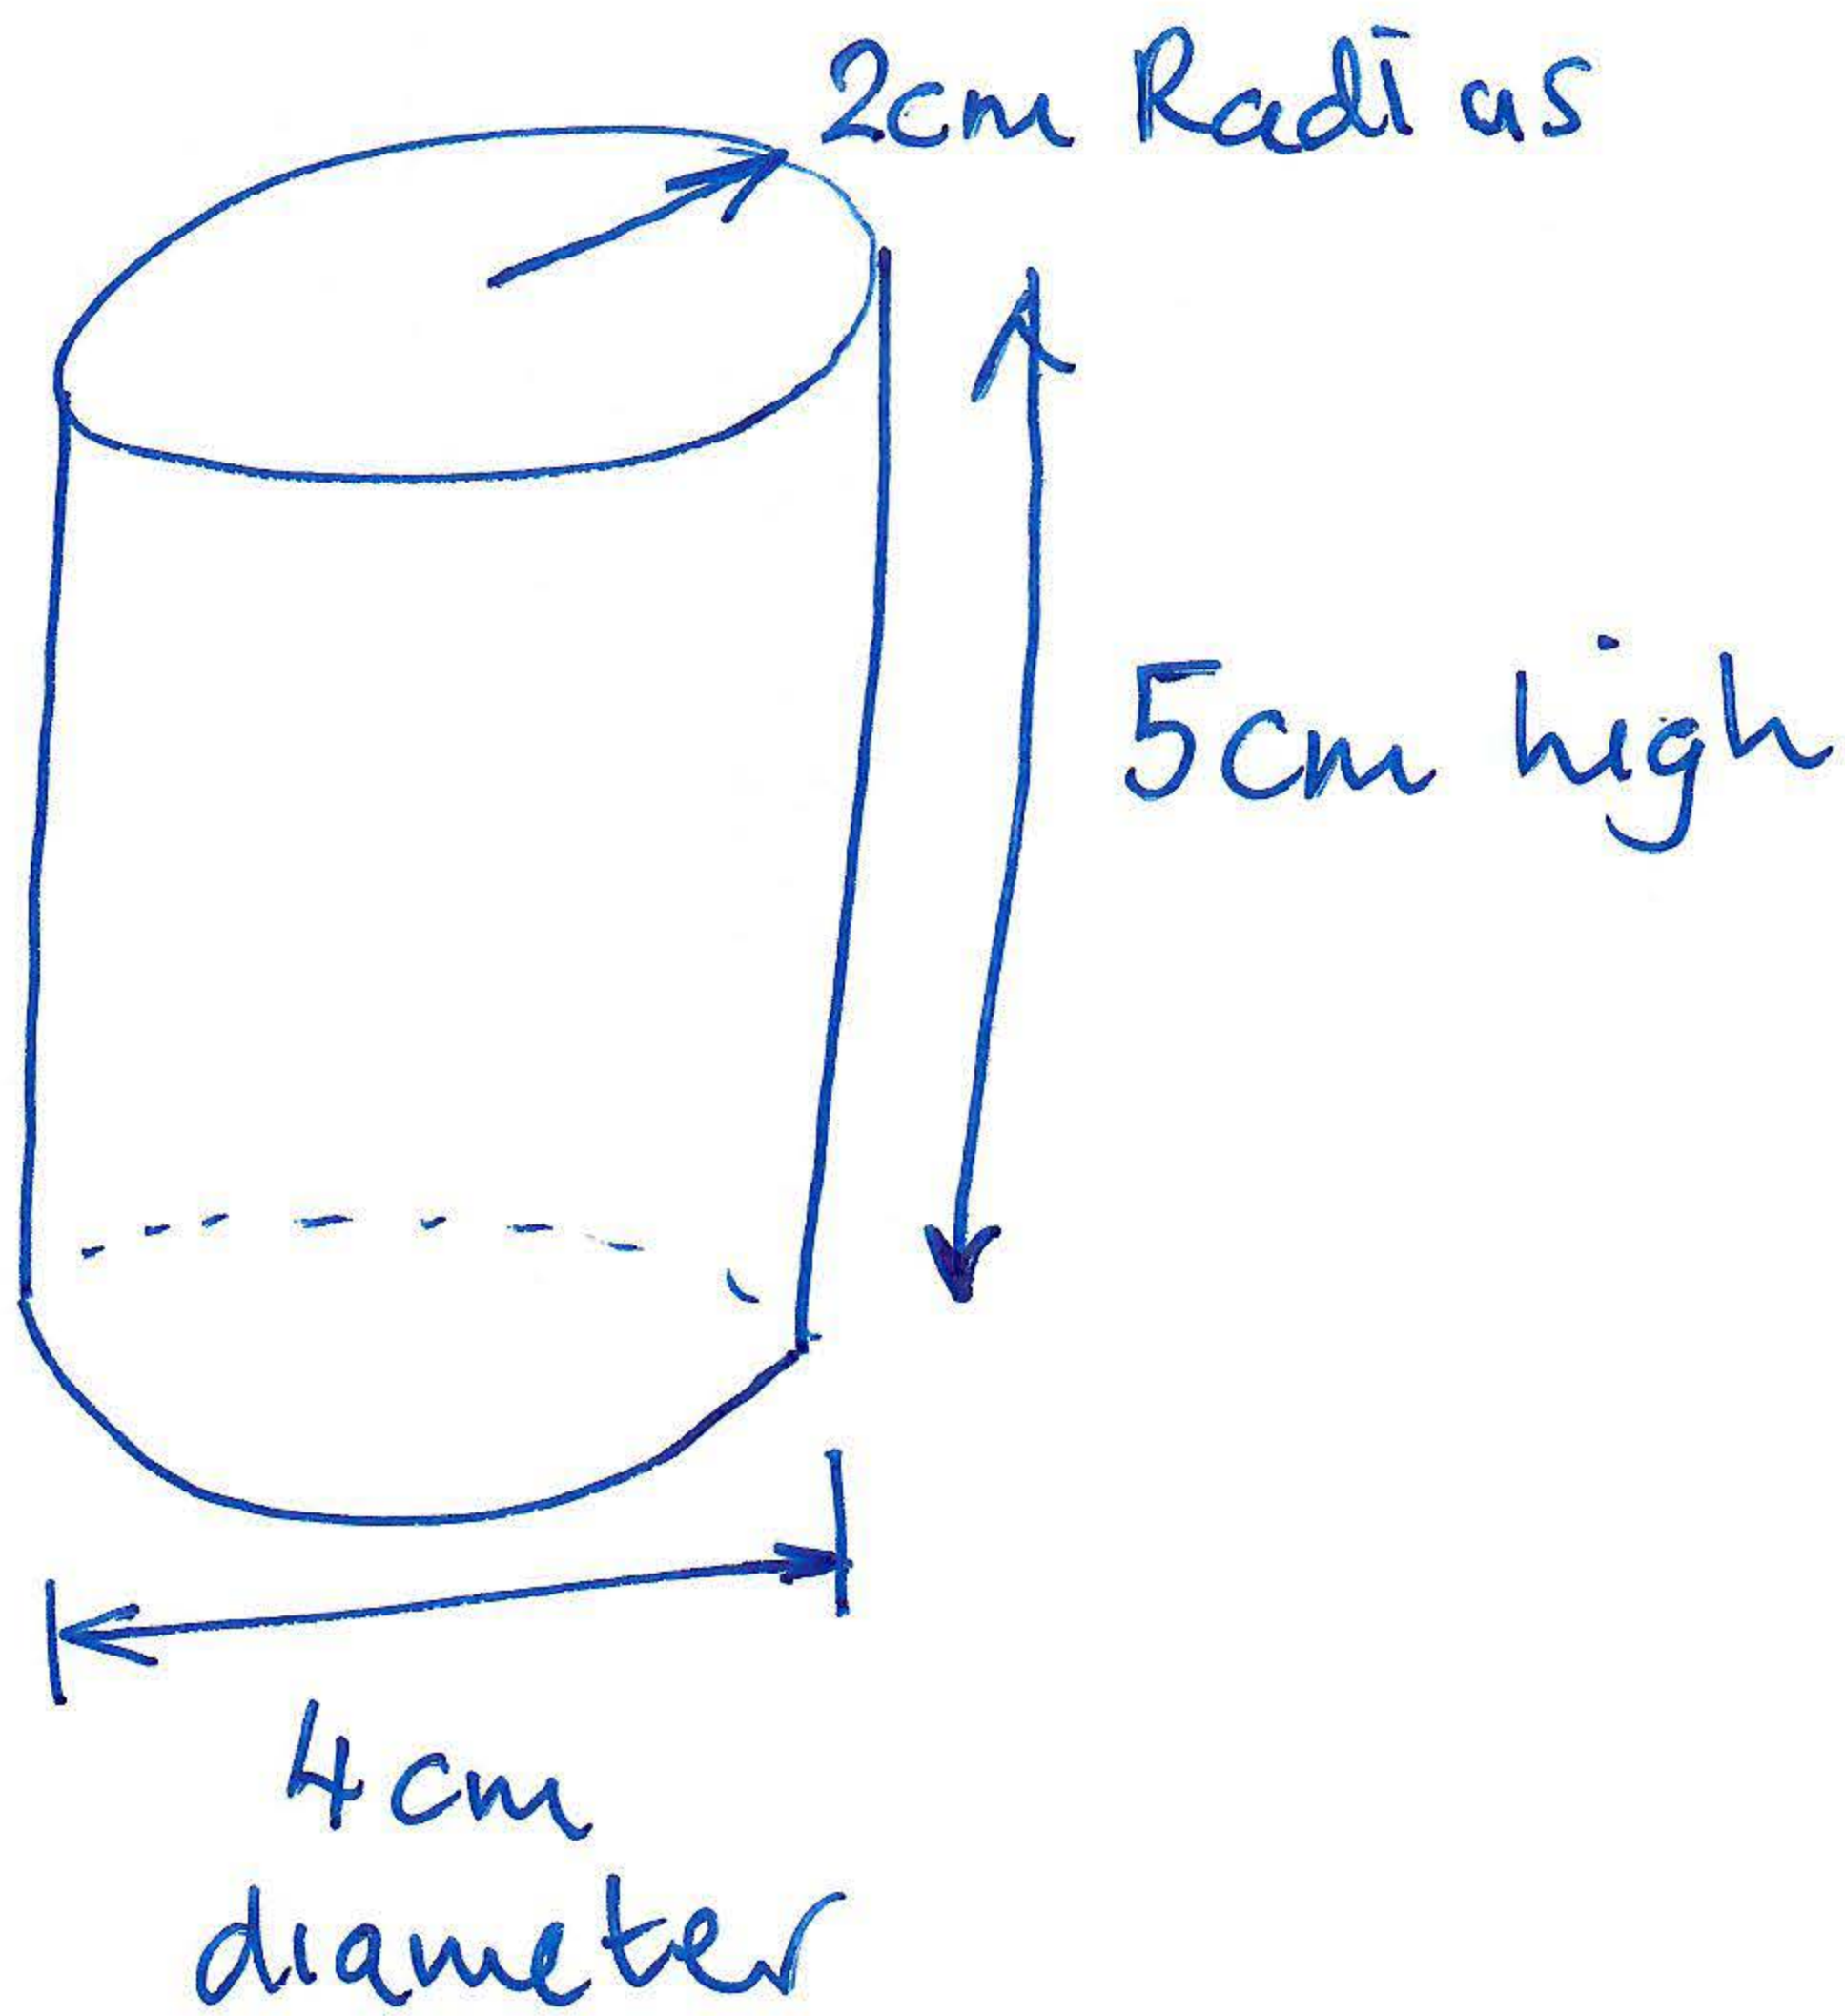 2cm Radius
5cm high
4cm
diameter